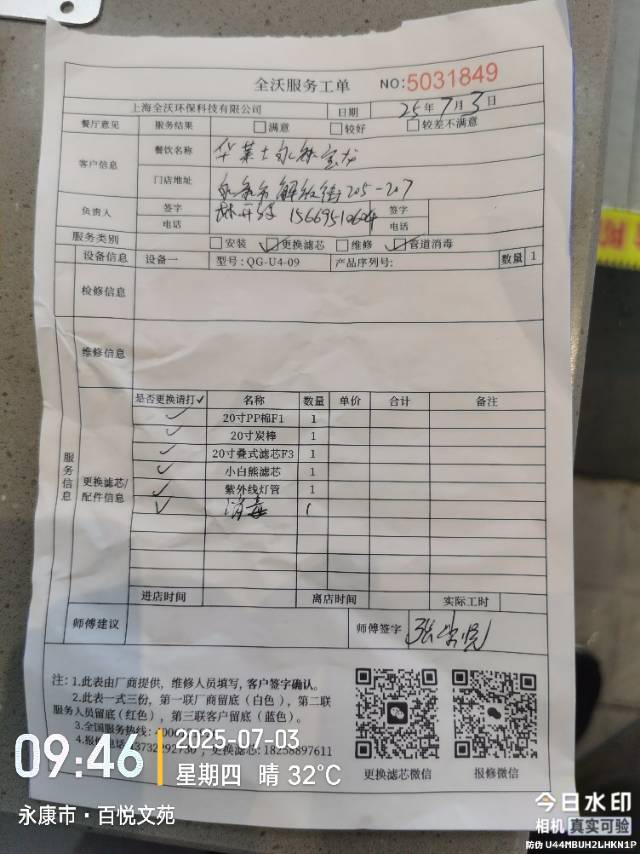 全沃服务工单 NO:5031849
上海全沃环保科技有限公司 日期 25年7月3日
餐厅意见 服务结果 □满意 □较好 □较差不满意
客户信息 餐饮名称 华莱士永康宝龙
门店地址 永康市解放街205-207
负责人 签字 签字
电话 15669510604 电话
服务类别 □安装 ☑更换滤芯 □维修 ☑管道消毒
设备信息 设备一 型号:QG-U4-09 产品序列号: 数量 1
检修信息
维修信息
服务信息
更换滤芯/配件信息
是否更换请打✓ 名称 数量 单价 合计 备注
✓ 20寸PP棉F1 1
✓ 20寸炭棒 1
✓ 20寸叠式滤芯F3 1
✓ 小白熊滤芯 1
✓ 紫外线灯管 1
✓ 消毒 1
进店时间 离店时间 实际工时
师傅建议 师傅签字
注:1.此表由厂商提供,维修人员填写,客户签字确认。
2.此表一式三份,第一联厂商留底(白色),第二联
服务人员留底(红色),第三联客户留底(蓝色)。
3.全国服务热线:
4.报修电话 更换滤芯:18258897611
更换滤芯微信 报修微信
09:46 2025-07-03
星期四 晴 32℃
永康市·百悦文苑
今日水印
相机 真实可验
防伪 U44MBUH2LHKN1P